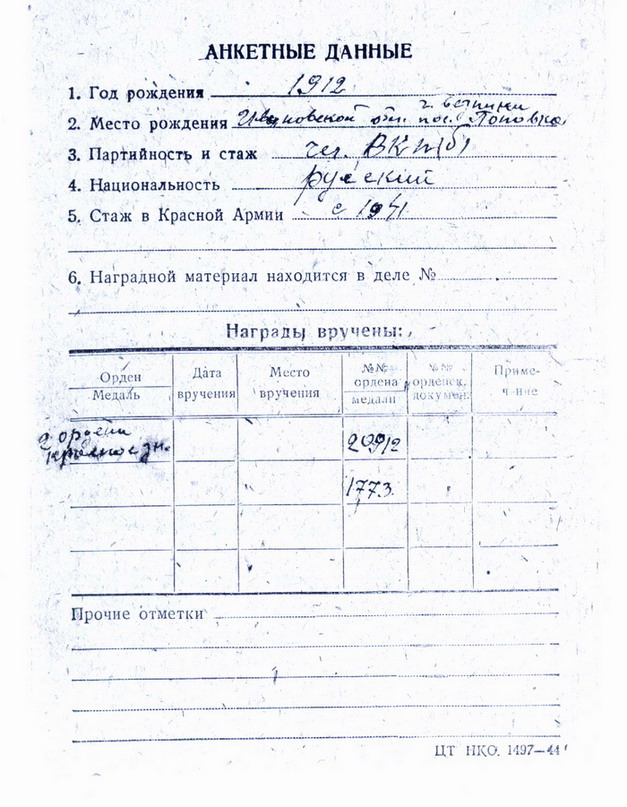 АНКЕТНЫЕ ДАННЫЕ
1. Год рождения 1912
г. Вс
2. Место рождения Ивановской обл. пос. Поповка
3. Партийность и стаж чл. ВКП(б)
4. Национальность русский
5. Стаж в Красной Армии с 1941
6. Наградной материал находится в деле №
Награды вручены:
Орден Медаль Дата вручения Место вручения №№ ордена медали №№ орденск. докумен. Приме- чание
2 ордена Красное зн. 20912
1773
Прочие отметки
ЦТ НКО. 1497—44